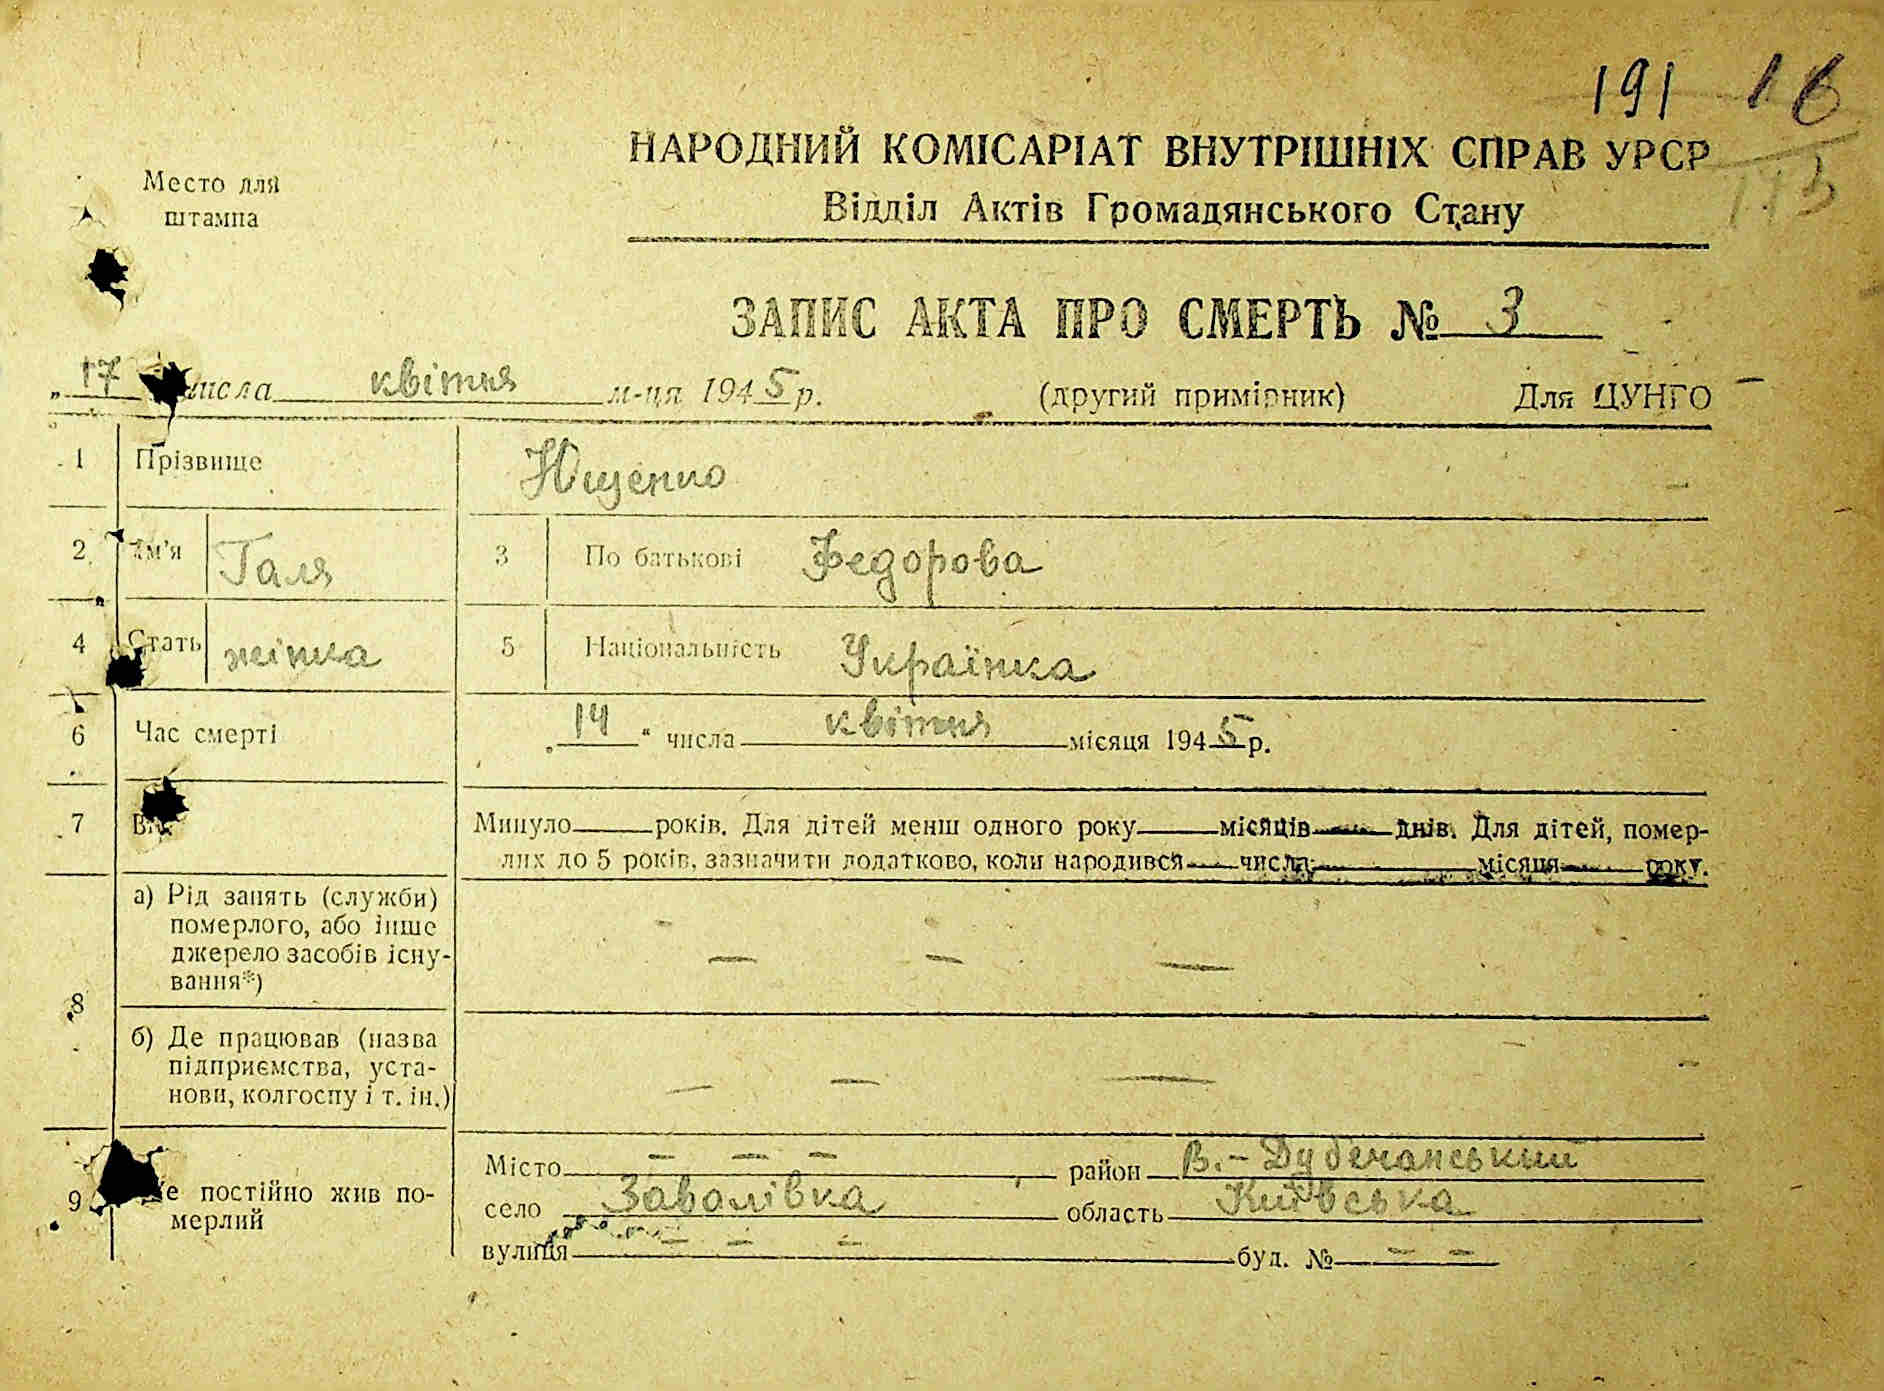 191 16
113
Место для
штампа
НАРОДНИЙ КОМІСАРІАТ ВНУТРІШНІХ СПРАВ УРСР
Відділ Актів Громадянського Стану
ЗАПИС АКТА ПРО СМЕРТЬ № 3
„17 числа квітня м-ця 1945 р. (другий примірник) Для ЦУНГО
1 Прізвище Ющенко
2 Ім'я Галя 3 По батькові Федорова
4 Стать жінка 5 Національність Українка
6 Час смерті „14“ числа квітня місяця 1945 р.
7 Вік Минуло років. Для дітей менш одного року місяців днів. Для дітей, помер-
лих до 5 років, зазначити додатково, коли народився числа місяця року.
8 а) Рід занять (служби)
померлого, або інше
джерело засобів існу-
вання*)
— — —
б) Де працював (назва
підприємства, уста-
нови, колгоспу і т. ін.)
— — —
9 Де постійно жив по-
мерлий
Місто — — — район В.-Дубечанський
село Завалівка область Київська
вулиця — — — буд. № — —